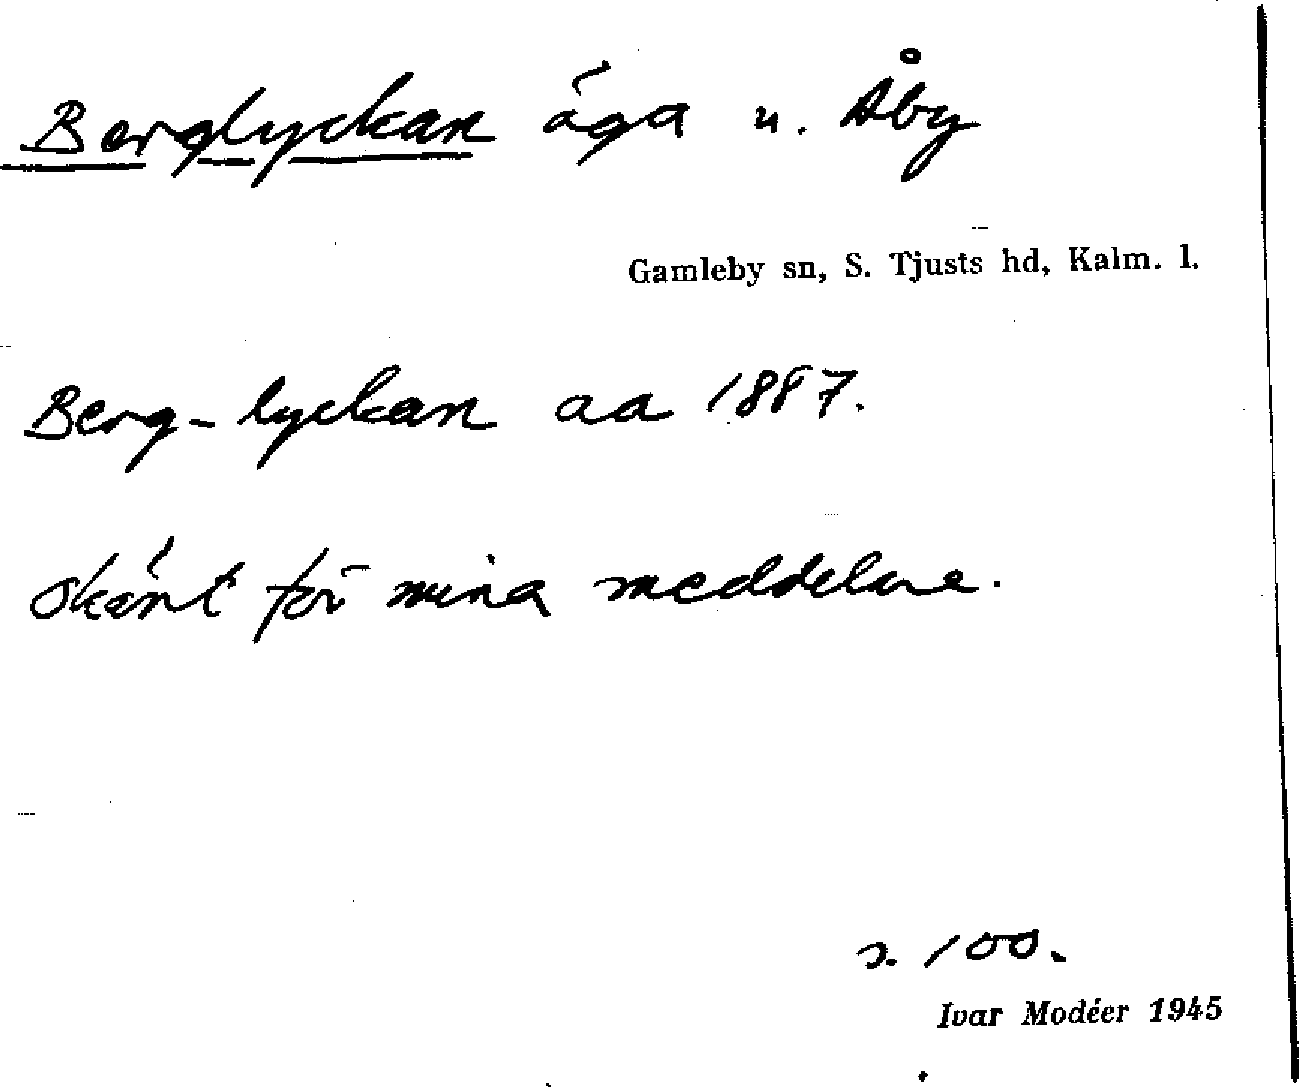 Berglyckan äga u. Åby
Gamleby sn, S. Tjusts hd, Kalm. l.
Berg-lyckan aa 1887.
Okänt för mina meddelare.
s. 100.
Ivar Modéer 1945